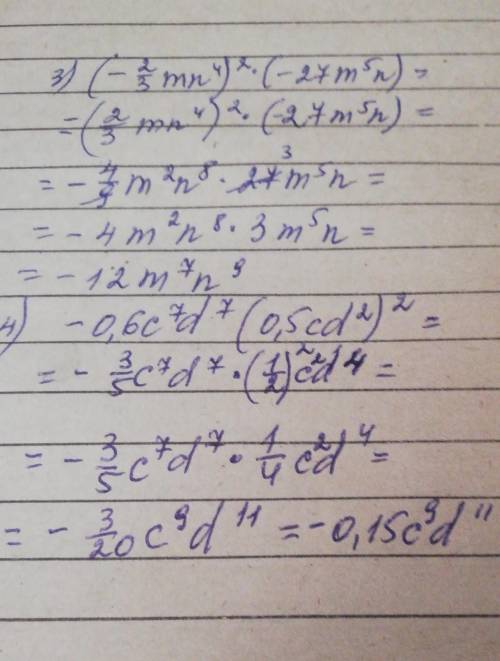 3) (-2/3 mn⁴)²·(-27m⁵n) =
=(2/3 mn⁴)²·(-27m⁵n) =
= -4/9 m²n⁸·27³m⁵n =
= -4m²n⁸·3m⁵n =
= -12m⁷n⁹
4) -0,6c⁷d⁷(0,5cd²)² =
= -3/5 c⁷d⁷·(1/2)²c²d⁴ =
= -3/5 c⁷d⁷·1/4 c²d⁴ =
= -3/20 c⁹d¹¹ = -0,15c⁹d¹¹